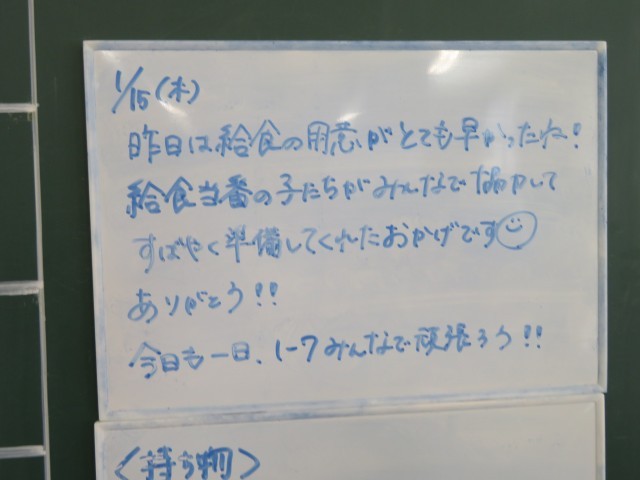 1/15(木)
昨日は給食の用意がとても早かったね!
給食当番の子たちがみんなで協力して
すばやく準備してくれたおかげです
ありがとう!!
今日も一日、1-7みんなで頑張ろう!!
<持ち物>